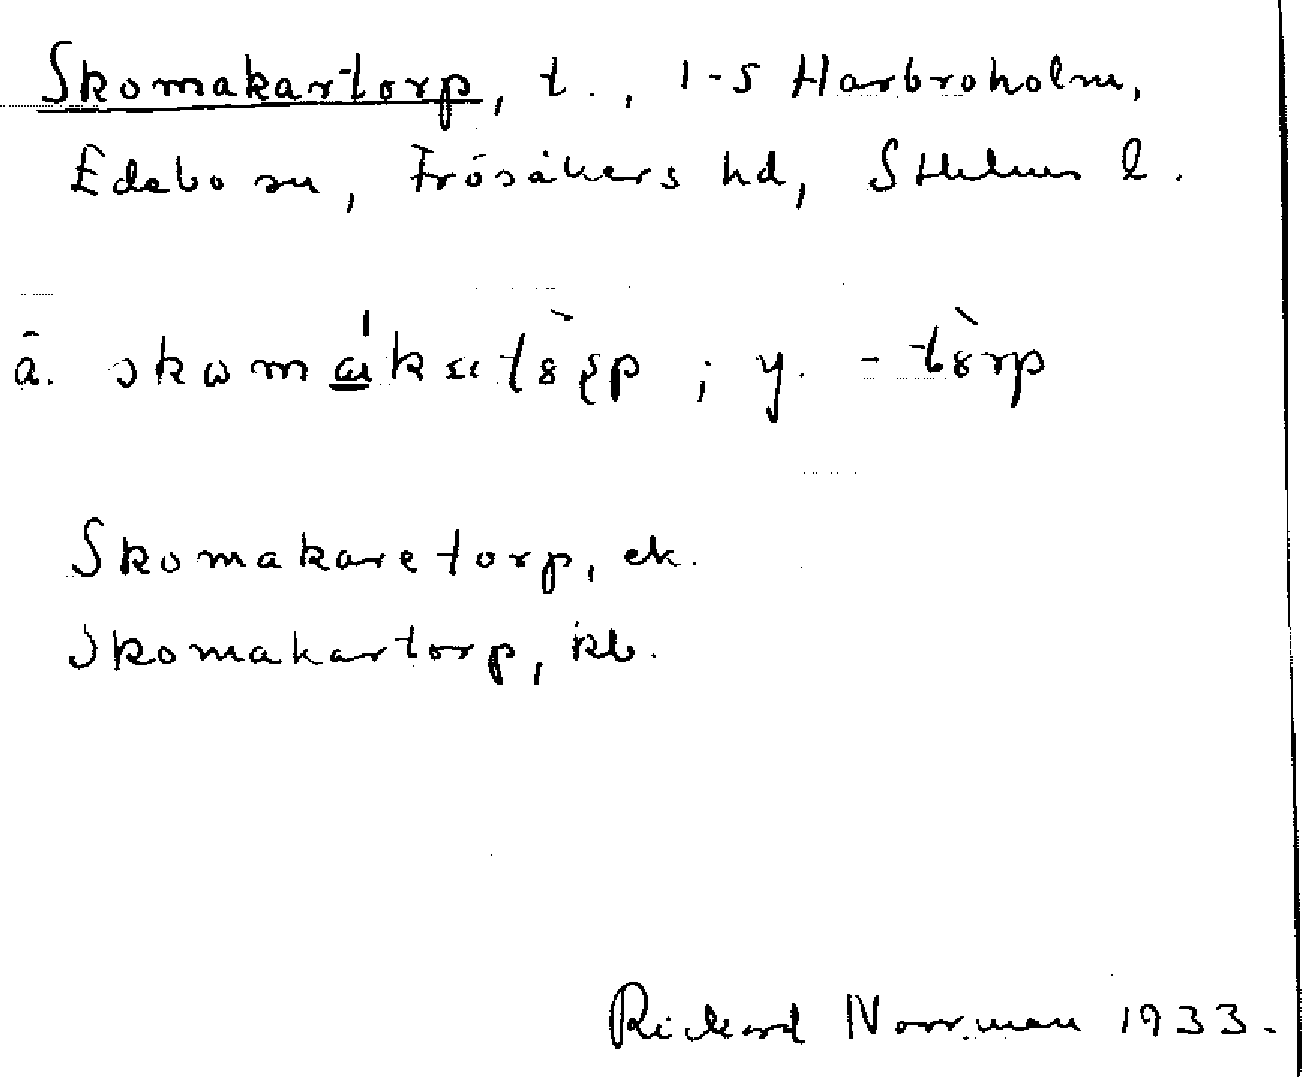 Skomakartorp, t., 1-5 Harbroholm,
Edebo sn, Frösåkers hd, Sthlms l.
ä. ; y.
Skomakaretorp, ek.
Skomakartorp, kb.
Rickard Norrman 1933.